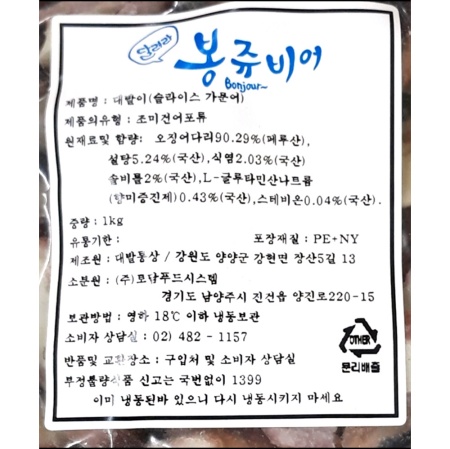 달려라
봉쥬비어
Bonjour~
제품명 : 대발이(슬라이스 가문어)
제품의유형 : 조미건어포류
원재료및 함량: 오징어다리90.29%(페루산),
설탕5.24%(국산),식염2.03%(국산)
솔비톨2%(국산), L-글루타민산나트륨
(향미증진제)0.43%(국산), 스테비온0.04%(국산).
중량 : 1kg
유통기한 : 포장재질 : PE+NY
제조원 : 대발통상 / 강원도 양양군 강현면 장산5길 13
소분원 : (주)모담푸드시스템
경기도 남양주시 진건읍 양진로220-15
보관방법 : 영하 18℃ 이하 냉동보관
소비자 상담실 : 02) 482 - 1157
반품및 교환장소 : 구입처 및 소비자 상담실
부정불량식품 신고는 국번없이 1399
이미 냉동된바 있으니 다시 냉동시키지 마세요
OTHER
분리배출